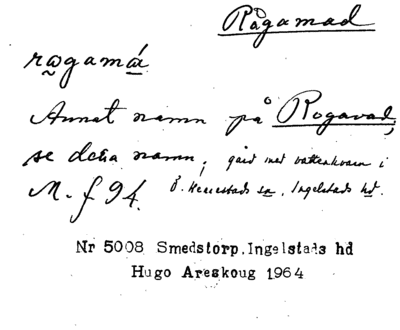 Rågamad
rωgamá
Annat namn på Rogavad,
se detta namn; gård med vattenkvarn i
M. f 94. Ö. Herrestads sn, Ingelstads hd.
Nr 5008 Smedstorp.Ingelstads hd
Hugo Areskoug 1964